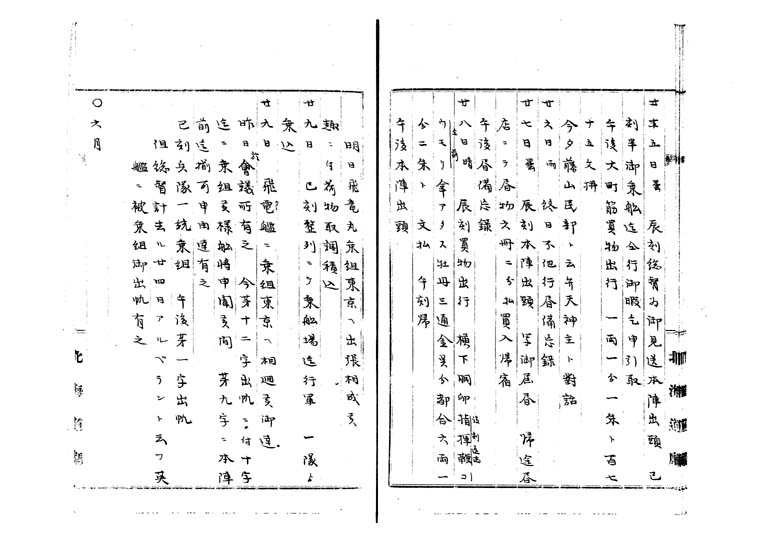 廿五日曇 辰刻総督為御見送本陣出頭 已
刻半御乗船迄会行御暇乞申引取
午後大町筋買物出行 一両一分一朱ト百七
十五文拂
今夕藤山民部ト云弁天神主ト對話
廿六日雨 終日不他行昼備忘録
廿七日曇 辰刻本陣出頭 写御届昼 帰途昼
店ニテ昼物六冊二分払買入帰宿
午後昼備忘録
廿八日晴 辰刻買物出行 横下胴卯指揮鞭コ
ウモリ傘アタス牡丹三通金具分都合六両一
分二朱ト 文払 午刻帰
午後本陣出頭
明日飛竜丸乗組東京ヘ出張相成候
趣ニ付荷物取調積込
廿九日 已刻整列ニテ乗船場迄行軍 一隊ヨ
乗込
廿九日 飛電艦ニ乗組東京ヘ相廻候御達
昨日会議所有之 今第十二字出帆ニ付十字
迄ニ乗組候様船将申聞候間 第九字ニ本陣
前迄揃可申由達有之
已刻兵隊一統乗組 午後第一字出帆
但総督計去ル廿四日アルベラントト云フ英
艦ニ被乗組御出帆有之
〇六月
北海道廳